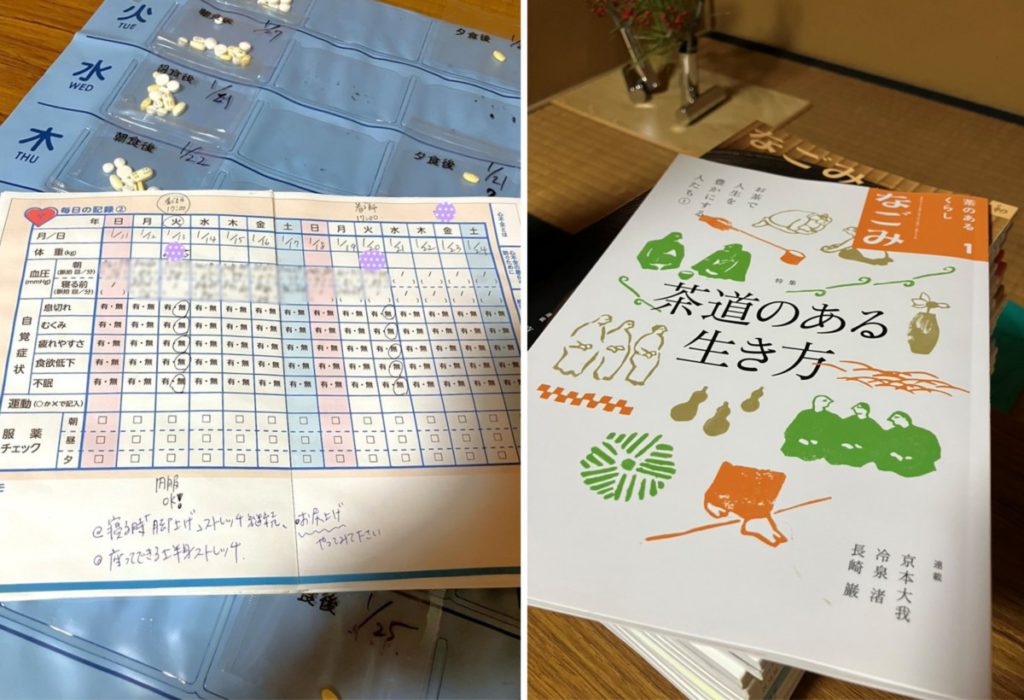 火
TUE
1/27
夕食後
水
WED
朝食後
1/21
木
THU
朝食後
1/22
夕食後
1/21
毎日の記録②
年 日 月 火 水 木 金 土 日 月 火 水 木 金 土
月/日 1/11 1/12 1/13 1/14 1/15 1/16 1/17 1/18 1/19 1/20 1/21 1/22 1/23 1/24
17:00
17:00
体重(kg)
血圧(mmHg)
朝(脈拍 回/分)
寝る前(脈拍 回/分)
自覚症状
息切れ 有・無 有・無 有・無 有・無 有・無 有・無 有・無 有・無 有・無 有・無 有・無 有・無 有・無
むくみ 有・無 有・無 有・無 有・無 有・無 有・無 有・無 有・無 有・無 有・無 有・無 有・無 有・無
疲れやすさ 有・無 有・無 有・無 有・無 有・無 有・無 有・無 有・無 有・無 有・無 有・無 有・無 有・無
食欲低下 有・無 有・無 有・無 有・無 有・無 有・無 有・無 有・無 有・無 有・無 有・無 有・無 有・無
不眠 有・無 有・無 有・無 有・無 有・無 有・無 有・無 有・無 有・無 有・無 有・無 有・無 有・無
運動(○か×で記入)
服薬チェック
朝
昼
夕
内服
OK!
寝る時「脚上げ」ストレッチ 継続、お尻上げ
やってみて下さい
座ってできる上半身ストレッチ
食後
1/25
なごみ
茶のある
くらし
なごみ
1
お茶で
人生を
豊かにする
人たち①
特集
茶道のある
生き方
連載
京本大我
冷泉渚
長崎巌